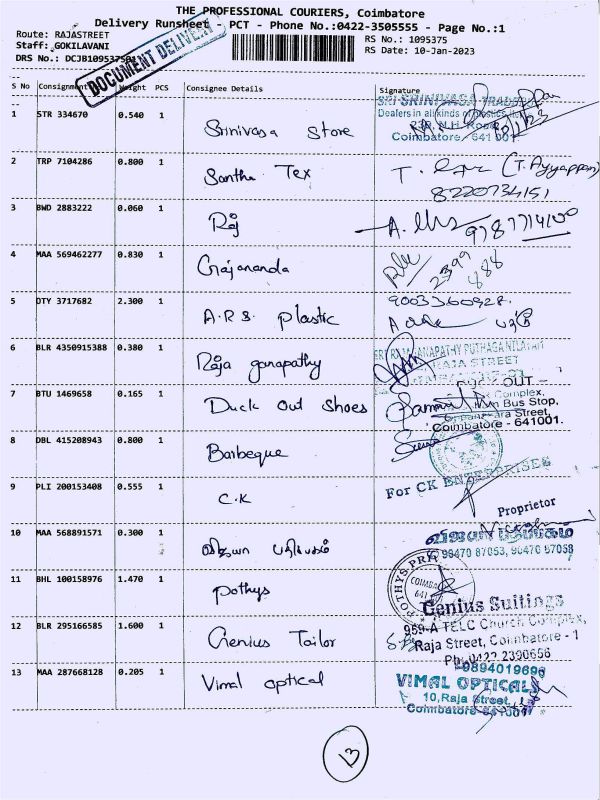 THE PROFESSIONAL COURIERS, Coimbatore
Delivery Runsheet - PCT - Phone No.:0422-3505555 - Page No.:1
Route: RAJASTREET
RS No.: 1095375
Staff: GOKILAVANI
RS Date: 10-Jan-2023
DRS No.: DCJB1095375
DOCUMENT DELIVERY
S No Consignment Weight PCS Consignee Details Signature
1 STR 334670 0.540 1 Srinivasa Store
SRI SRINIVASA TRADERS
Dealers in all kinds of
Coimbatore 641 001
2 TRP 7104286 0.800 1 Santha Tex
T. (T. Ayyappan)
8220734151
3 BWD 2883222 0.060 1 Raj
A.
4 MAA 569462277 0.830 1 Gajananda
5 DTY 3717682 2.300 1 A.R.S. plastic
9003360928.
6 BLR 4350915388 0.380 1 Raja ganapathy
RAJA STREET
7 BTU 1469658 0.165 1 Duck Out Shoes
OUT -
Complex,
Bus Stop,
Street,
Coimbatore - 641001.
8 DBL 415208943 0.800 1 Barbeque
9 PLI 200153408 0.555 1 C.K
For CK ENTERPRISES
Proprietor
10 MAA 568891571 0.300 1 விஜயா பதிப்பகம்
விஜயா பதிப்பகம்
90470 87053, 90470 87058
11 BHL 100158976 1.470 1 pothys
POTHYS
COIMBA
641
12 BLR 295166585 1.600 1 Genius Tailor
Genius Suitings
959-A TELC Church Complex,
Raja Street, Coimbatore - 1
Ph: 0422 2390656
13 MAA 287668128 0.205 1 Vimal optical
9894019696
VIMAL OPTICALS
10, Raja Street,
Coimbatore-641001
13